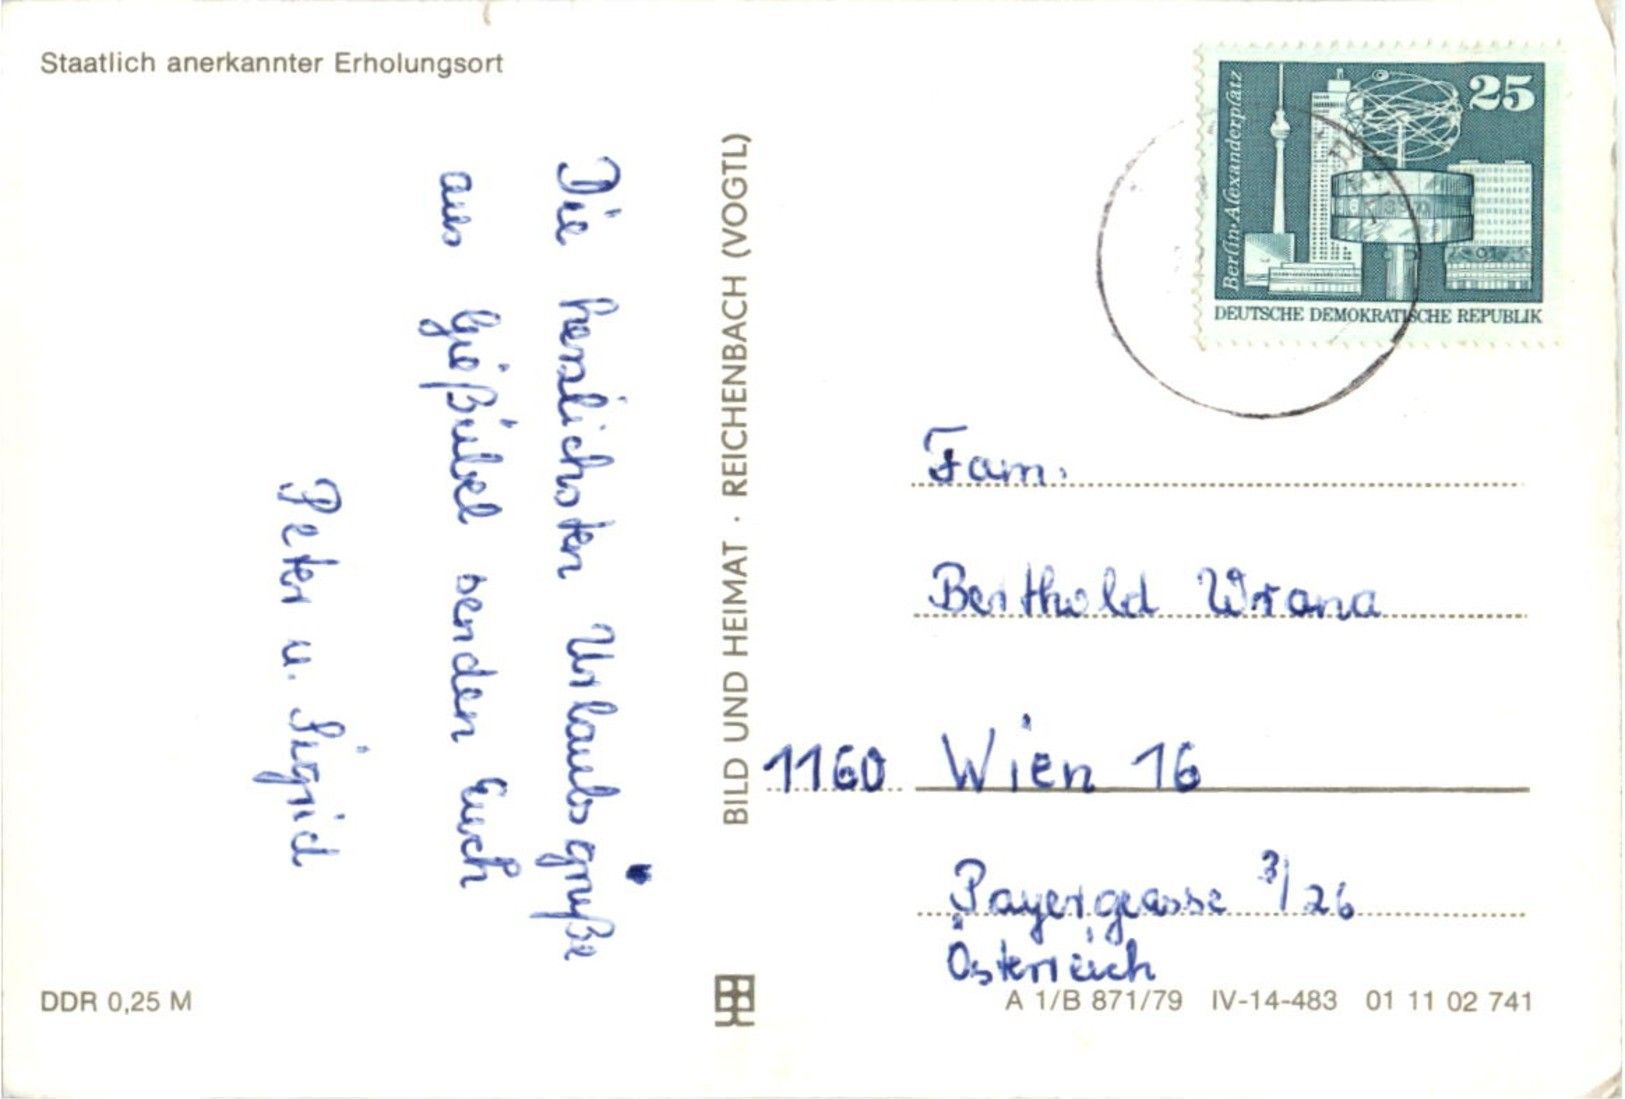 Staatlich anerkannter Erholungsort
Die herzlichsten Urlaubsgrüße
aus Gießübel senden Euch
Peter u. Sigrid
DDR 0,25 M
BILD UND HEIMAT · REICHENBACH (VOGTL)
Berlin·Alexanderplatz
25
DEUTSCHE DEMOKRATISCHE REPUBLIK
Fam.
Berthold Wrana
1160 Wien 16
Payergasse 3/26
Österreich
A 1/B 871/79 IV-14-483 01 11 02 741